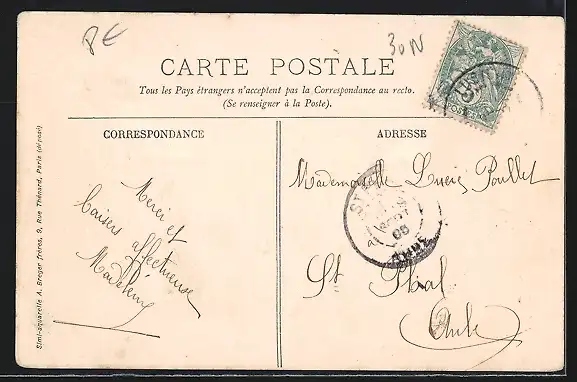 PE
30N
CARTE POSTALE
Tous les Pays étrangers n'acceptent pas la Correspondance au recto.
(Se renseigner à la Poste).
CORRESPONDANCE
Merci et
baisers affectueuse
Madeleine
ADRESSE
Mademoiselle Lucie Poullet
St Phal
Aube
POSTES
AUBE
Simi-aquarelle A. Breger frères, 9, Rue Thénard, Paris (déposé)